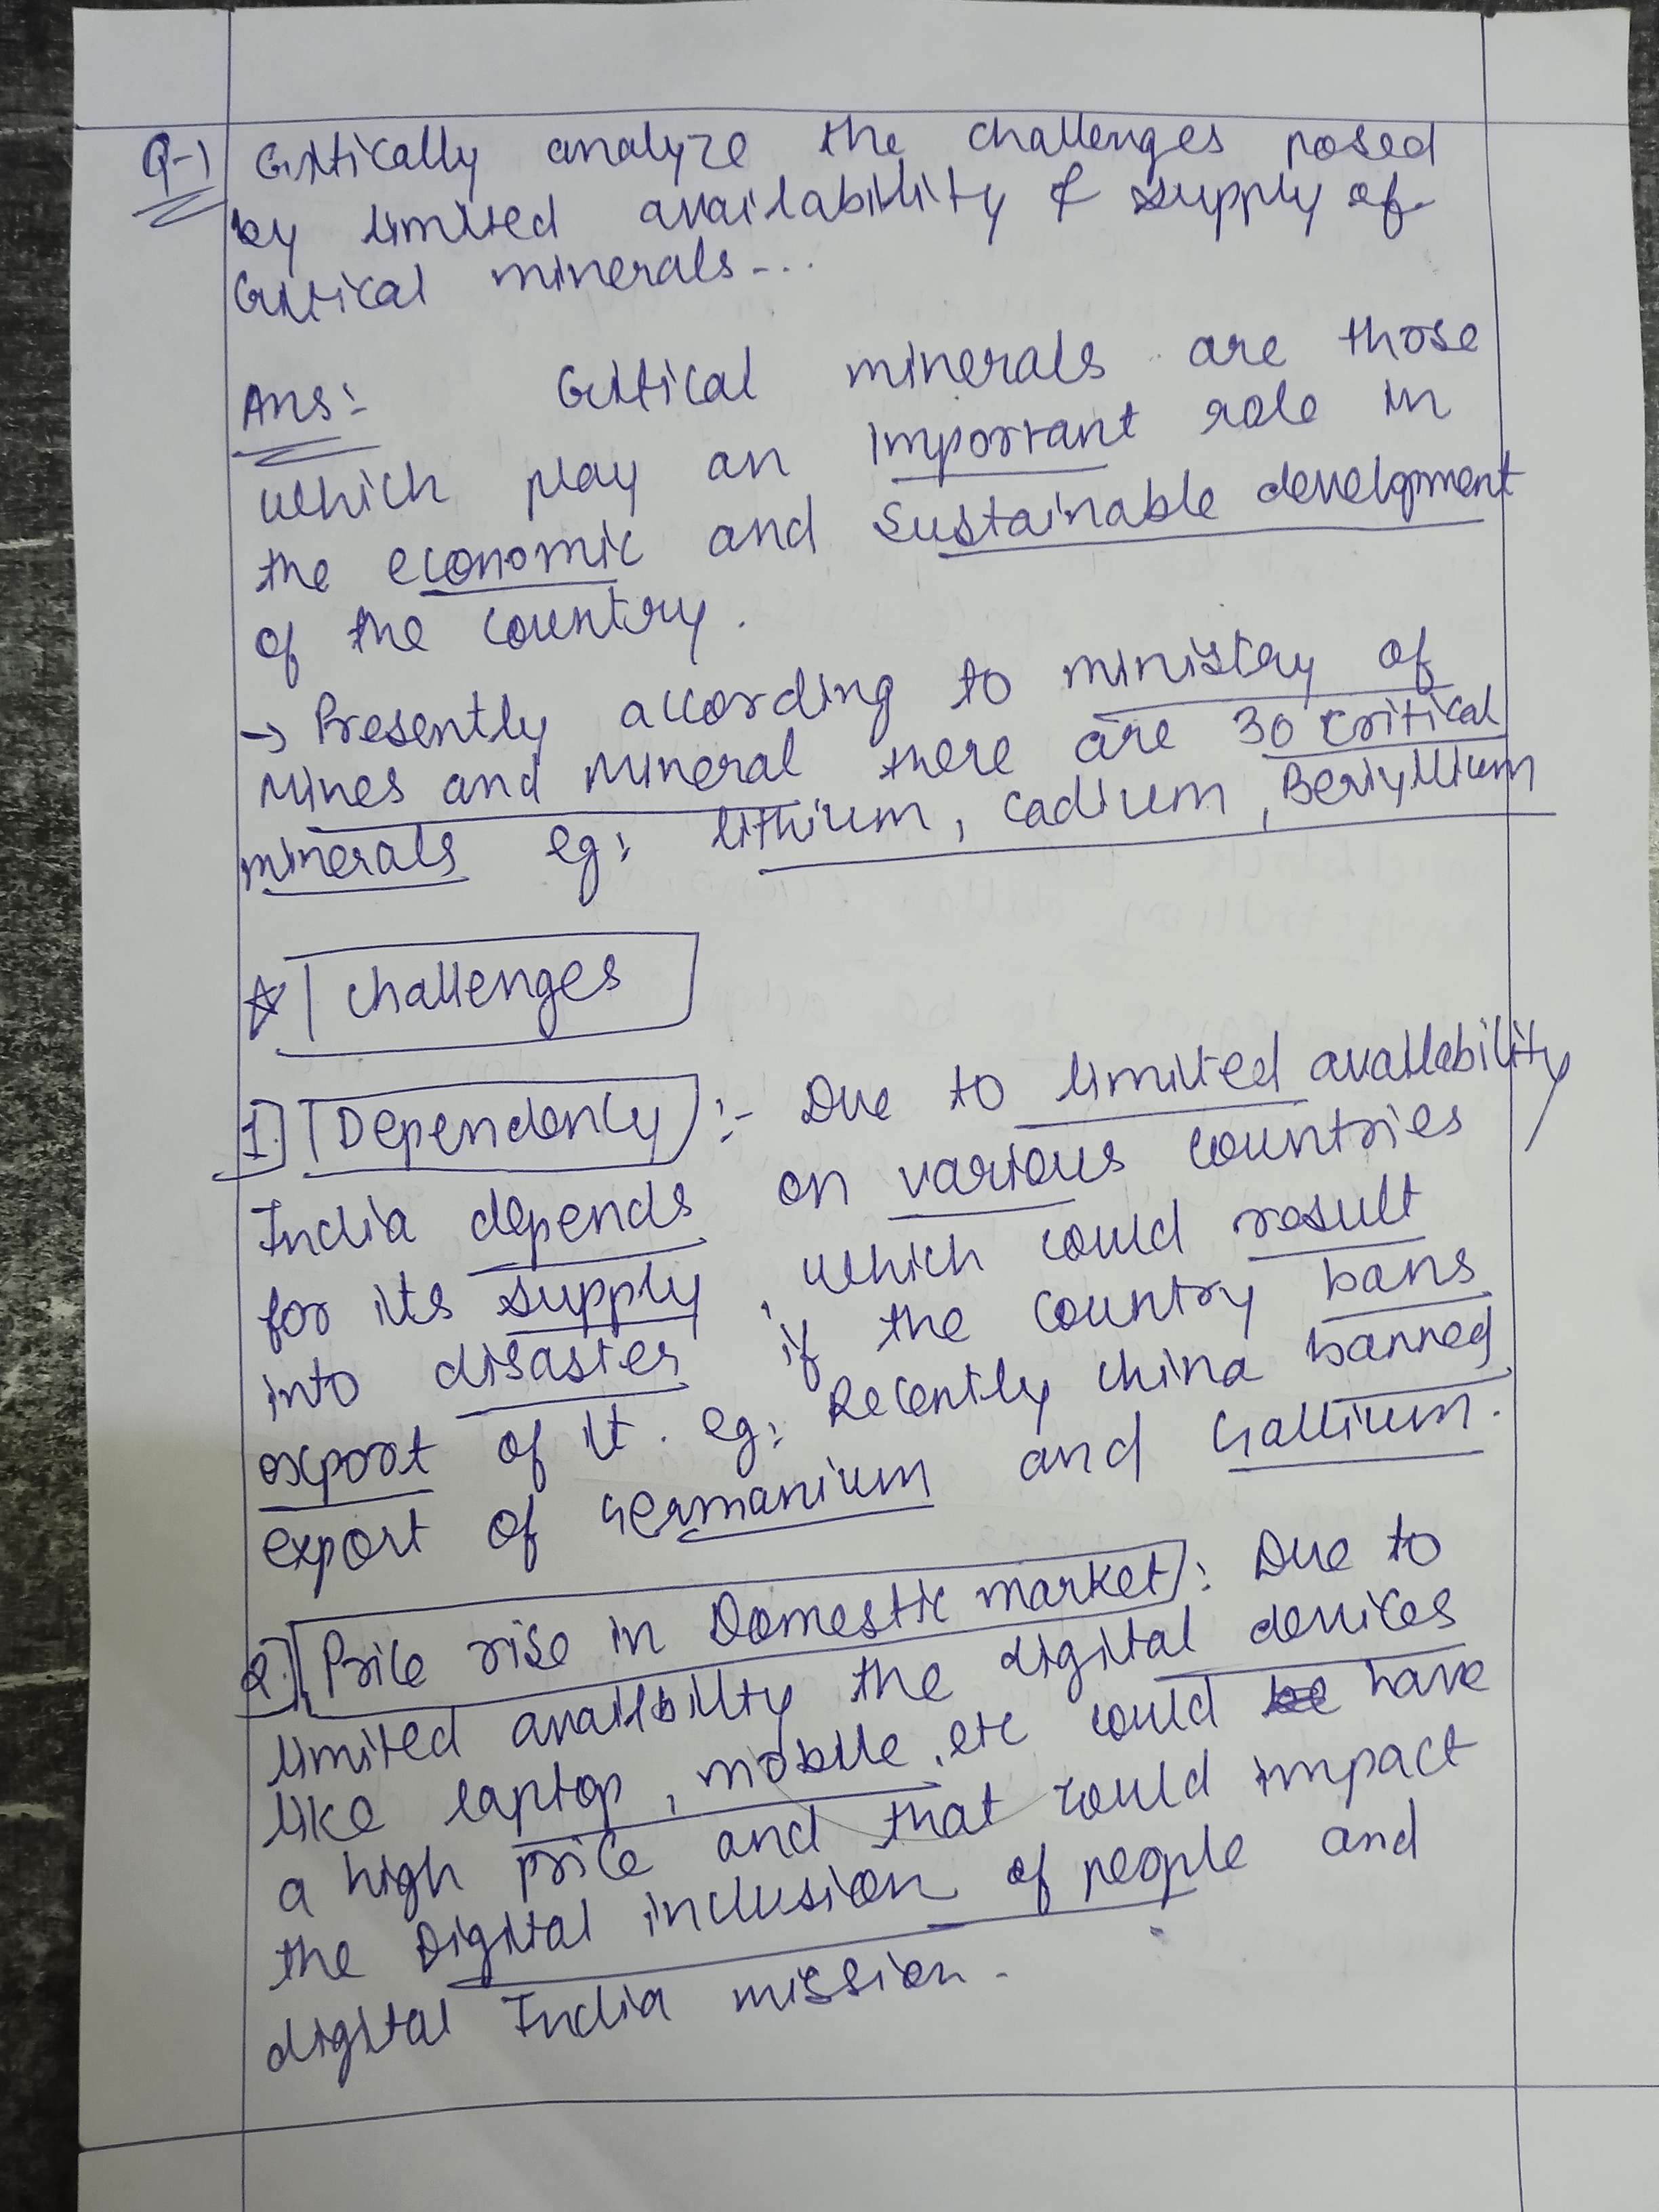 Q-1 Critically analyze the challenges posed
by limited availability & supply of
Critical minerals - ...
Ans:- Critical minerals are those
which play an important role in
the economic and sustainable development
of the country.
→ Presently according to ministry of
Mines and Mineral there are 30 critical
minerals eg: lithium, cadium, Beriyllium
☆ Challenges
1.] Dependency :- Due to limited availability
India depends on various countries
for its supply, which could result
into disaster if the country bans
export of it. eg: Recently China banned
export of Germanium and Gallium.
2.] Price rise in Domestic market : Due to
limited availbility the digital devices
like laptop, mobile, etc could be have
a high price and that would impact
the Digital inclusion of people and
digital India mission.